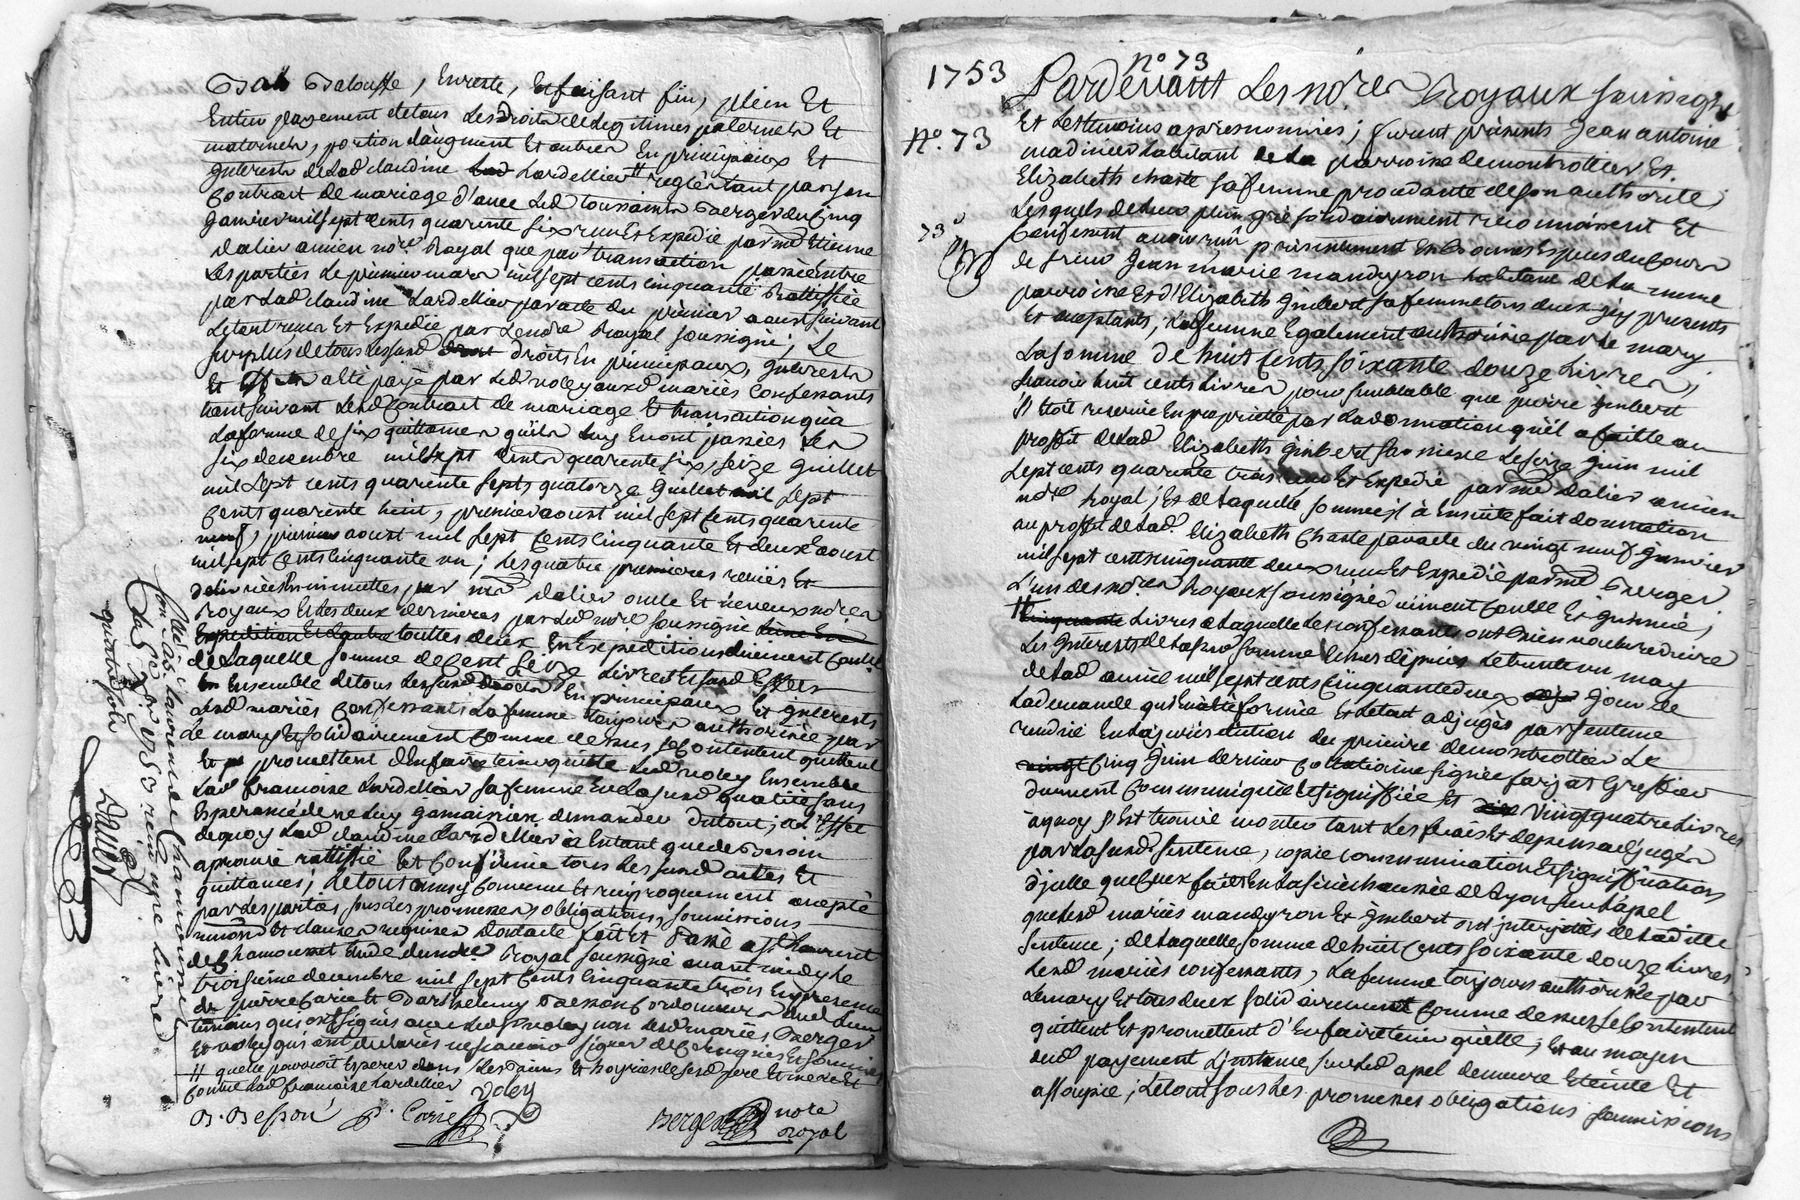 Entier payement de tous Les Droits de Legitimes paternels Et
maternels, portion d'augment Et autres En principaux Et
Interests de Lad claudine Lardellier reglés tant par son
Contrat de mariage d'avec Led toussaints Berger du Cinq
Janvier mil sept cents quarente six reçu Et Expedié par me Etienne
dalier ancien nore Royal que par transaction passée entre
Les parties Le premier mars mil sept cents cinquante Rattiffiée
par Lad claudine Lardellier par acte du premier aoust suivant
Le tout reçu Et Expedié par Le nore Royal soussigné; Le
surplus de tous lesusd droits En principaux, Interests
Et a été payé par Led voley auxd mariés Confessants
tant suivant Led Contrat de mariage Et transaction qu'a
La forme de six quittances qu'ils Luy En ont passées Les
six decembre mil sept cents quarente six, seize Juillet
mil Sept cents quarente sept, quatorze Juillet mil sept
Cents quarente huit, premier aoust mil sept Cents quarente
neuf, premier aoust mil sept Cents Cinquante Et deux aoust
mil sept Cents Cinquante un; Les quatre premieres reçues Et
delivrées En minuttes par me dalier oncle Et neveux nores
royaux Et les deux dernieres par Led nore soussigné
touttes deux En Expeditions duement Contlé
de Laquelle somme de Cent Seize Livres Et susd Effets
Ensemble de tous Lesusd Droits En principaux Et Interests
Lesd mariés Confessants La femme toujours authorisée par
Le mary Et solidairement Comme dessus se Contentent quittent
Et promettent d'En faire tenir quitte Led voley Ensemble
Lad francoise Lardellier sa femme En Lasusd qualité sans
Esperance de ne Luy jamais rien demander du tout; a L'Effet
de quoy Lad claudine Lardellier a Entant que de Besoin
aprouvé rattiffié Et Confirmé tous Lesusd actes Et
quittances; Le tout ainsy Convenu Et reciproquement accepté
par Les parties sous Les promesses, obligations, soumissions
renonc Et clauses requises dont acte fait Et Passé a St Laurent
de Chamousset Etude dud nore Royal soussigné avant midy Le
troisieme decembre mil sept Cents Cinquante trois En presence
de pierre Carie Et Barthelemy Besson Cordonniers dud Lieu
temoins qui ont signés avec Led Sr voley non Lesd mariés Berger
Et voley qui ont declarés ne sçavoir signer de Ce Enquis Et sommés
// quelle pourroit Esperer dans Les Biens Et hoyries de sesd pere Et mere Et
Contre Lad francoise Lardellier
Voley
B. Besson P. Carie Berger nore
royal
Con a St Laurent de Chamousset
reçu une Livre
quatre sols
Dalier
1753
no 73
Pardevant Les nores Royaux soussignés
No. 73
Et Les temoins apres nommés; furent presents Jean antoine
madinier habitant de La parroisse de montrottier Et
Elizabeth charle sa femme procedante de son authorité
Lesquels de Leur plein gré solidairement reconnoissent Et
73
Confessent avoir reçu presentement En Bonnes Especes du Cours
de sieur Jean marie mandeyron habitant de La meme
parroisse Et d'Elizabeth Gimbert sa femme tous deux icy presents
Et acceptants, Lad femme Egalement authorisée par Le mary
La somme de huit Cents soixante douze Livres;
sçavoir huit cents Livres pour semblable que pierre Gimbert
S'Etoit reservée En proprietté par La donnation qu'il a faitte au
proffit de Lad Elizabeth Gimbert sa niece Le seize Juin mil
sept cents quarente trois reçu Et Expedié par me dalier ancien
nore Royal; Et de Laquelle somme il a Ensuite fait donnation
au proffit de Lad Elizabeth Charle par acte du vingt neuf Janvier
mil sept cents cinquante deux reçu Et Expedié par me Berger
L'un des nores Royaux soussignés duement Contlé Et Insinué;
Livres a Laquelle Les confessants ont bien voulu reduire
Les Interests de La susd somme Echus depuis Le trente un may
de Lad année mil sept cents Cinquante deux jour de
La demande qu'En a été formée Et Le tout adjugés par sentence
rendue En La jurisdiction du prieuré de montrottier Le
Cinq Juin dernier Collationnée signée farjat Greffier
duement Communiquée Et signiffiée Et Vingt quatre Livres
a quoy s'Est trouvé monter tant Les frais Et depens adjugés
par Lasusd sentence, copie communication Et signiffication
d'jcelle que Ceux faits En La senechaussée de Lyon sur L'apel
que Lesd mariés mandeyron Et Gimbert ont interjettés de Laditte
sentence; de Laquelle somme de huit Cents soixante douze Livres
Lesd mariés confessants, La femme toujours authorisée par
Le mary Et tous deux solidairement Comme dessus se Contentent
quittent Et promettent d'En faire tenir quitte; Et au moyen
dud payement L'instance sur Led apel demeure Eteinte Et
assoupie; Le tout sous Les promesses obligations soumissions